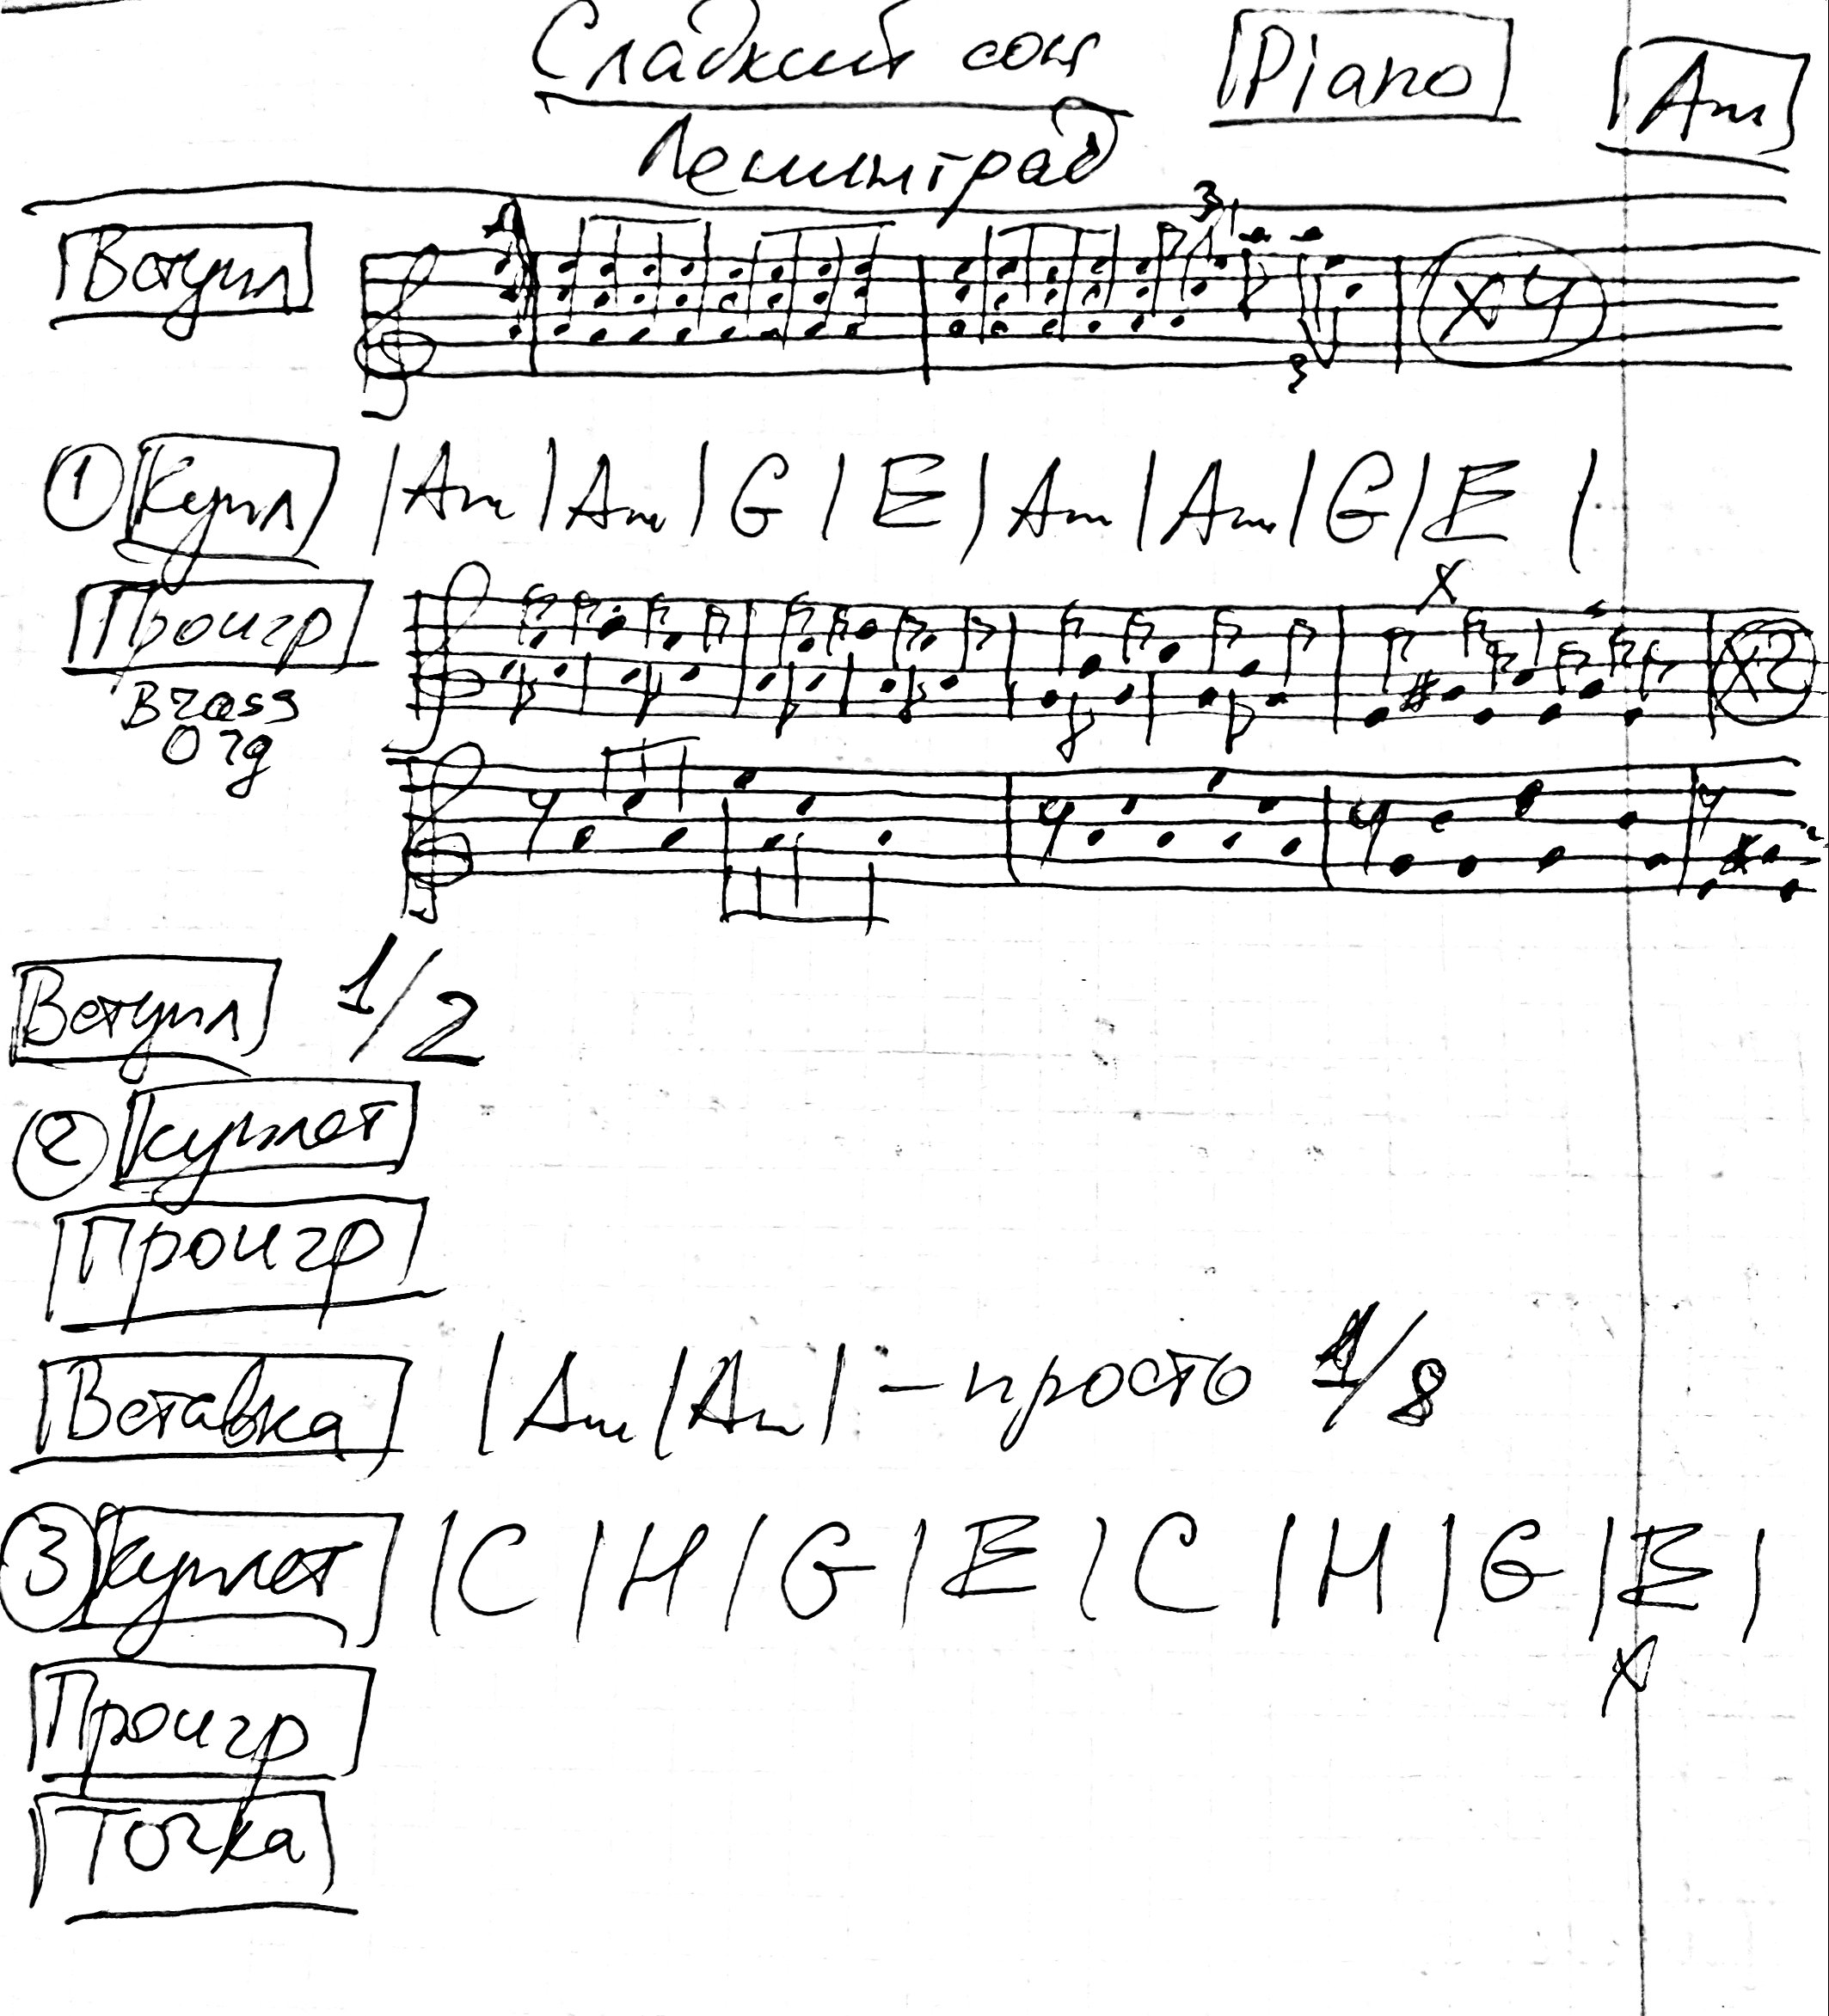 Сладкий сон Piano Am
Ленинград
Вступл 3 3 x4
1 Купл | Am | Am | G | E | Am | Am | G | E |
Проигр X x2
Brass
Org
Вступл 1/2
2 Куплет
Проигр
Вставка | Am | Am | – просто 1/8
3 Куплет | C | H | G | E | C | H | G | E |
X
Проигр
Точка